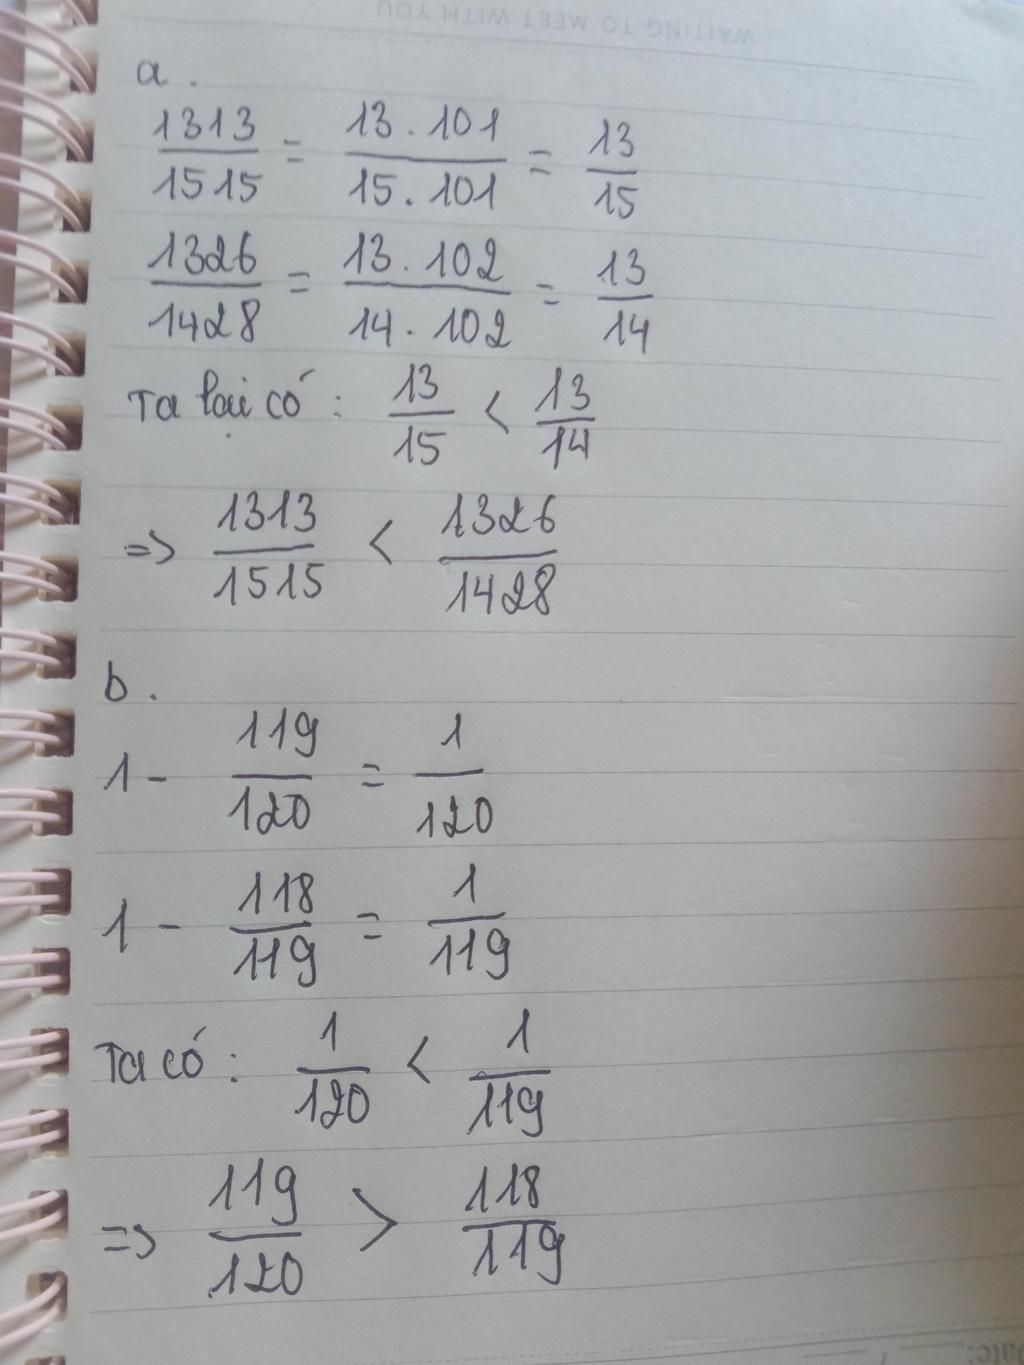 WAITING TO MEET WITH YOU
a.
1313/1515 = 13.101/15.101 = 13/15
1326/1428 = 13.102/14.102 = 13/14
Ta lại có: 13/15 < 13/14
=> 1313/1515 < 1326/1428
b.
1 - 119/120 = 1/120
1 - 118/119 = 1/119
Ta có: 1/120 < 1/119
=> 119/120 > 118/119
Date: